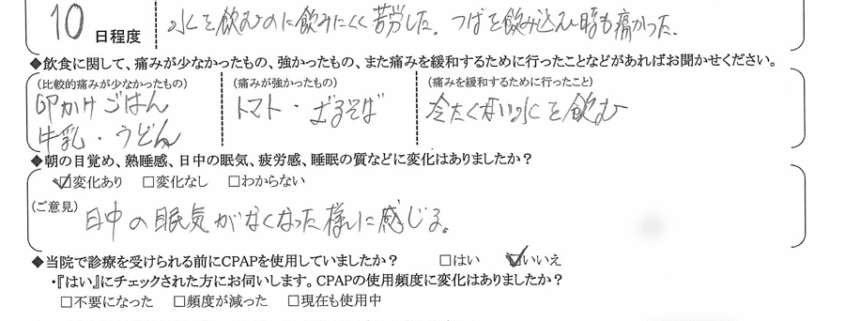 10 日程度 水を飲むのに飲みにくく苦労した。つばを飲み込む時も痛かった。
◆飲食に関して、痛みが少なかったもの、強かったもの、また痛みを緩和するために行ったことなどがあればお聞かせください。
(比較的痛みが少なかったもの) (痛みが強かったもの) (痛みを緩和するために行ったこと)
卵かけごはん トマト・ざるそば 冷たくない水を飲む
牛乳・うどん
◆朝の目覚め、熟睡感、日中の眠気、疲労感、睡眠の質などに変化はありましたか?
☑変化あり □変化なし □わからない
(ご意見) 日中の眠気がなくなった様に感じる。
◆当院で診療を受けられる前にCPAPを使用していましたか? □はい ☑いいえ
・『はい』にチェックされた方にお伺いします。CPAPの使用頻度に変化はありましたか?
□不要になった □頻度が減った □現在も使用中